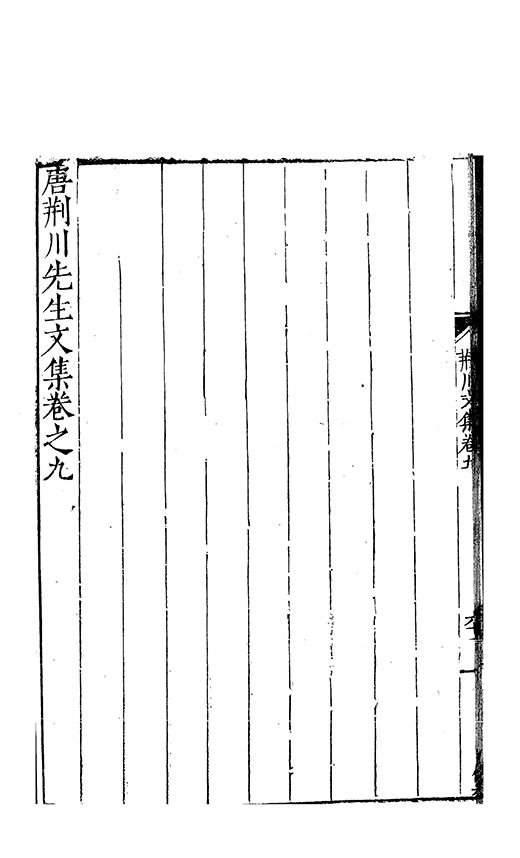 荆川文集卷九
唐荆川先生文集卷之九